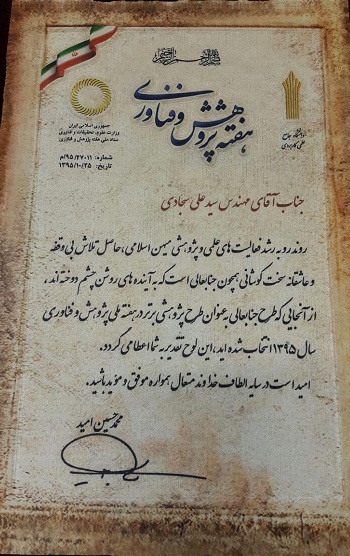 بسم الله الرحمن الرحیم
هفته پژوهش و فناوری
جمهوری اسلامی ایران
وزارت علوم، تحقیقات و فناوری
ستاد ملی هفته پژوهش و فناوری
دانشگاه جامع
علمی کاربردی
شماره: ۹۵/۴۷۰۱۱/م
تاریخ: ۱۳۹۵/۱۰/۲۵
جناب آقای مهندس سید علی سجادی
روند رو به رشد فعالیت های علمی و پژوهشی میهن اسلامی، حاصل تلاش بی وقفه
و عاشقانه سخت کوشانی همچون جنابعالی است که به آینده های روشن چشم دوخته اند،
از آنجایی که طرح جنابعالی به عنوان طرح پژوهشی برتر در هفته ملی پژوهش و فناوری
سال ۱۳۹۵ انتخاب شده اید، این لوح تقدیر به شما اعطا می گردد.
امید است در سایه الطاف خداوند متعال همواره موفق و مؤید باشید.
محمد حسین امید